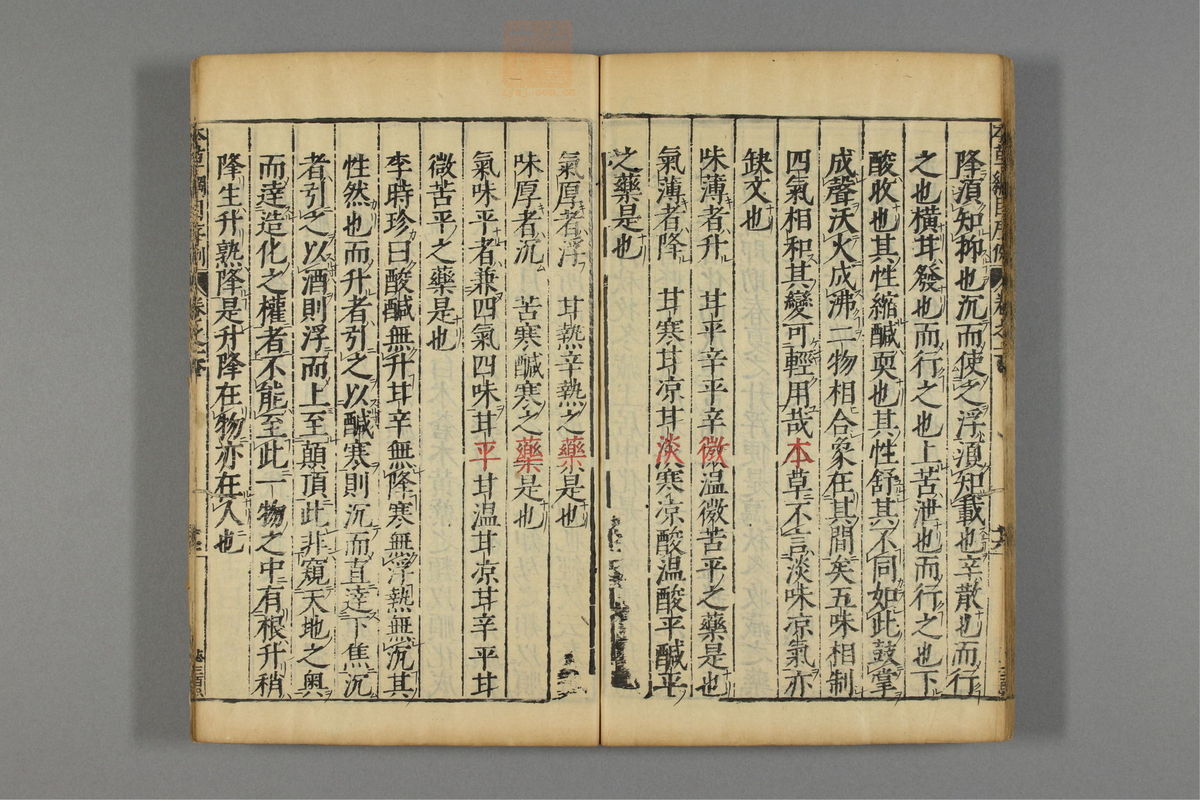 降須知抑也沉而使之浮須知載也辛散也而行
之也橫甘發也而行之也上苦泄也而行之也下
酸收也其性縮鹹耎也其性舒其不同如此鼓掌
成聲沃火成沸二物相合象在其間矣五味相制
四氣相和其變可輕用哉本草不言淡味凉氣亦
缺文也
味薄者升 甘平辛平辛微溫微苦平之藥是也
氣薄者降 甘寒甘凉甘淡寒凉酸溫酸平鹹平
之藥是也
氣厚者浮 甘熱辛熱之藥是也
味厚者沉 苦寒鹹寒之藥是也
氣味平者兼四氣四味甘平甘温甘凉甘辛平甘
微苦平之藥是也
李時珍曰酸鹹無升甘辛無降寒無浮熱無沉其
性然也而升者引之以鹹寒則沉而直達下焦沉
者引之以酒則浮而上至顛頂此非窺天地之奥
而達造化之權者不能至此一物之中有根升稍
降生升熟降是升降在物亦在人也